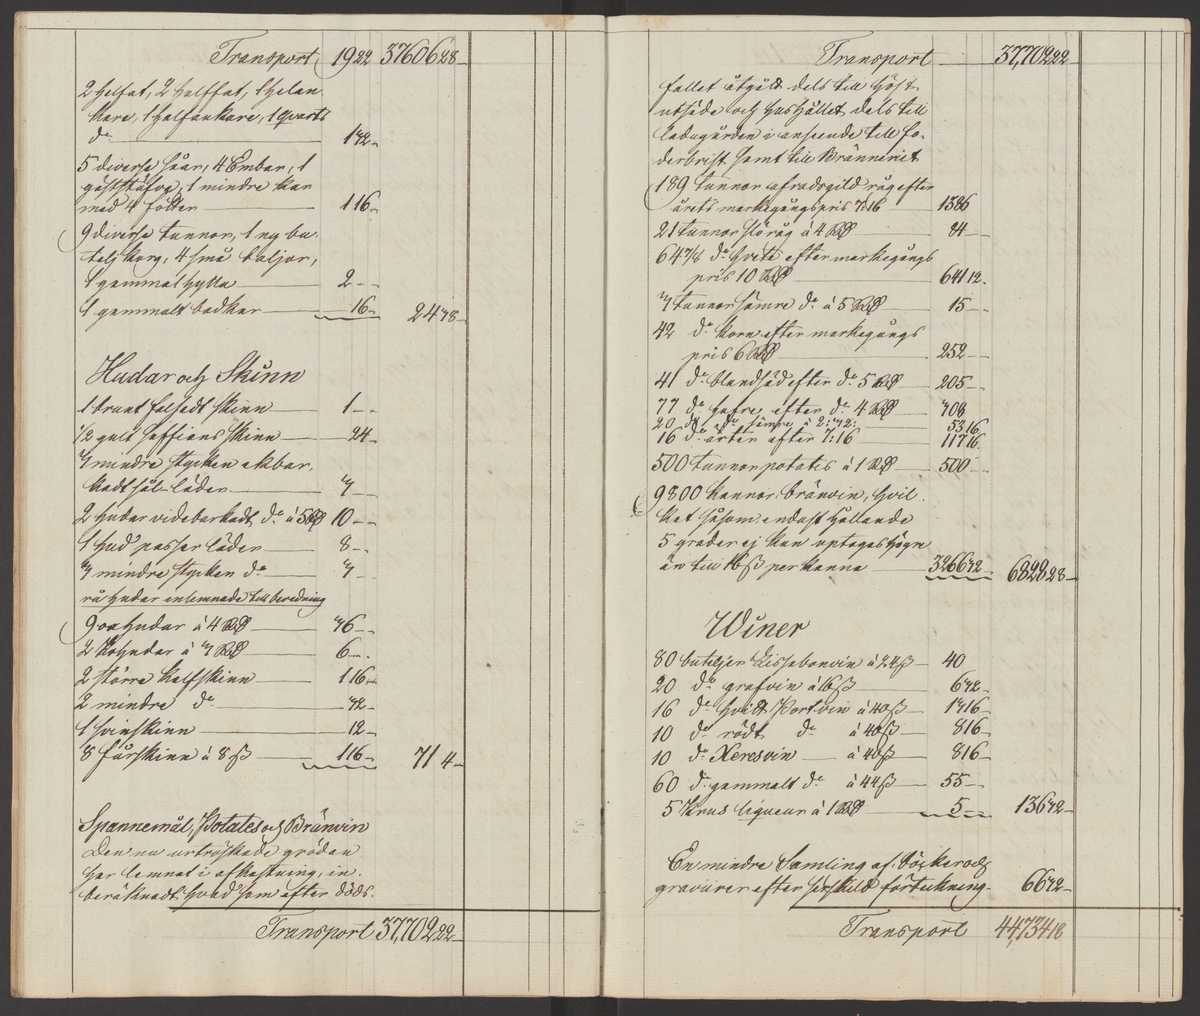 Transport 19 22 37606 28
2 helfat, 2 halffat, 1 helan
kare, 1 halfankare, 1 qvarts
do 1 42
5 diverse såar, 4 Embar, 1
1 mindre kar
med 4 fötter 1 16
9 diverse tunnor, 1 ny bu-
telj korg, 4 små baljor,
1 gammal hylla 2
1 gammalt badkar 16 24 48
Hudar och Skinn
1 brunt falsedt skinn 1
1/2 gult saffians skinn 24
3 mindre stycken ekbar-
kadt sål-läder 3
2 hudar videbarkadt do á 5 Rd 10
1 hud passer läder 8
3 mindre stycken do 3
rå hudar inlemnade till beredning
9 oxhudar á 4 Rd 36
2 kohudar á 3 Rd 6
2 större kalfskinn 1 16
2 mindre do 32
1 svinskinn 12
8 fårskinn á 8 ß 1 16 71 4
Spannemål, Potates och Bränvin
Den nu urtröskade gröda
har lemnat i afkastning, in-
beräknadt hvad som efter döds-
Transport 37,702 22
Transport 37,702 22
fallet åtgått dels till höst-
utsäde och hushållet dels till
ladugården i anseende till fo-
derbrist samt till Bränneriet
189 tunnor afradsgild råg efter
årets markegångspris 7:16 1386
21 tunnor slöråg á 4 Rd 84
64 7/8 do hvete efter markegångs
pris 10 Rd 641 12
3 tunnor sämre do á 5 Rd 15
42 do korn efter markegångs
pris 6 Rd 252
41 do blandsäd efter do 5 Rd 205
77 do hafre efter do 4 Rd 308
20 do do sämre á 2:32 53 16
16 do ärter efter 7:16 117 16
500 tunnor potatis á 1 Rd 500
9800 kannor bränvin, hvil-
ket såsom endast hållande
5 grader ej kan uptagas högre
än till 16 ß per kanna 3266 32 6828 28
Winer
80 buteljer Lissabonvin á 24 ß 40
20 do grafvin á 16 ß 6 32
16 do hvidt Portvin á 40 ß 13 16
10 do rödt do á 40 ß 8 16
10 do Xeresvin á 40 ß 8 16
60 do gammalt do á 44 ß 55
5 krus liqueur á 1 Rd 5 136 32
En mindre Samling af böcker och
gravurer efter särskild förteckning 66 32
Transport 44,734 18